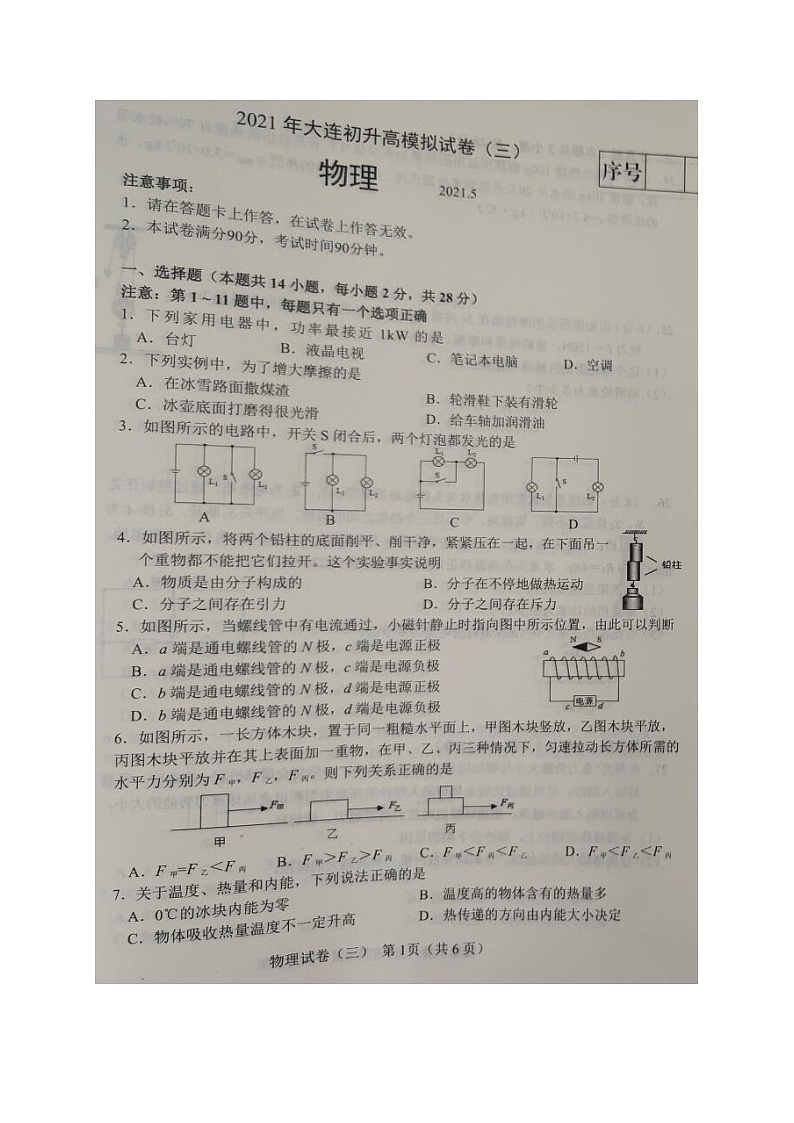 2021 年大连初升高模拟试卷（三）
物理
2021.5
序号
注意事项：
1．请在答题卡上作答，在试卷上作答无效。
2．本试卷满分90分，考试时间90分钟。
一、选择题（本题共 14 小题，每小题 2 分，共 28 分）
注意：第 1～11 题中，每题只有一个选项正确
1．下列家用电器中，功率最接近 1kW 的是
A．台灯 B．液晶电视 C．笔记本电脑 D．空调
2．下列实例中，为了增大摩擦的是
A．在冰雪路面撒煤渣 B．轮滑鞋下装有滑轮
C．冰壶底面打磨得很光滑 D．给车轴加润滑油
3．如图所示的电路中，开关 S 闭合后，两个灯泡都发光的是
L₁ S L₂
S L₁ L₂
L₁ L₂ S
L₁ S L₂
A B C D
4．如图所示，将两个铅柱的底面削平、削干净，紧紧压在一起，在下面吊一
个重物都不能把它们拉开。这个实验事实说明
铅柱
A．物质是由分子构成的 B．分子在不停地做热运动
C．分子之间存在引力 D．分子之间存在斥力
5．如图所示，当螺线管中有电流通过，小磁针静止时指向图中所示位置，由此可以判断
A．a 端是通电螺线管的 N 极，c 端是电源正极
B．a 端是通电螺线管的 N 极，c 端是电源负极
C．b 端是通电螺线管的 N 极，d 端是电源正极
D．b 端是通电螺线管的 N 极，d 端是电源负极
N S
a b
c 电源 d
6．如图所示，一长方体木块，置于同一粗糙水平面上，甲图木块竖放，乙图木块平放，
丙图木块平放并在其上表面加一重物，在甲、乙、丙三种情况下，匀速拉动长方体所需的
水平力分别为 F甲，F乙，F丙。则下列关系正确的是
F甲 F乙 F丙
甲 乙 丙
A．F甲=F乙<F丙 B．F甲>F乙>F丙 C．F甲<F丙<F乙 D．F甲<F乙<F丙
7．关于温度、热量和内能，下列说法正确的是
A．0℃的冰块内能为零 B．温度高的物体含有的热量多
C．物体吸收热量温度不一定升高 D．热传递的方向由内能大小决定
物理试卷（三） 第 1页（共 6 页）